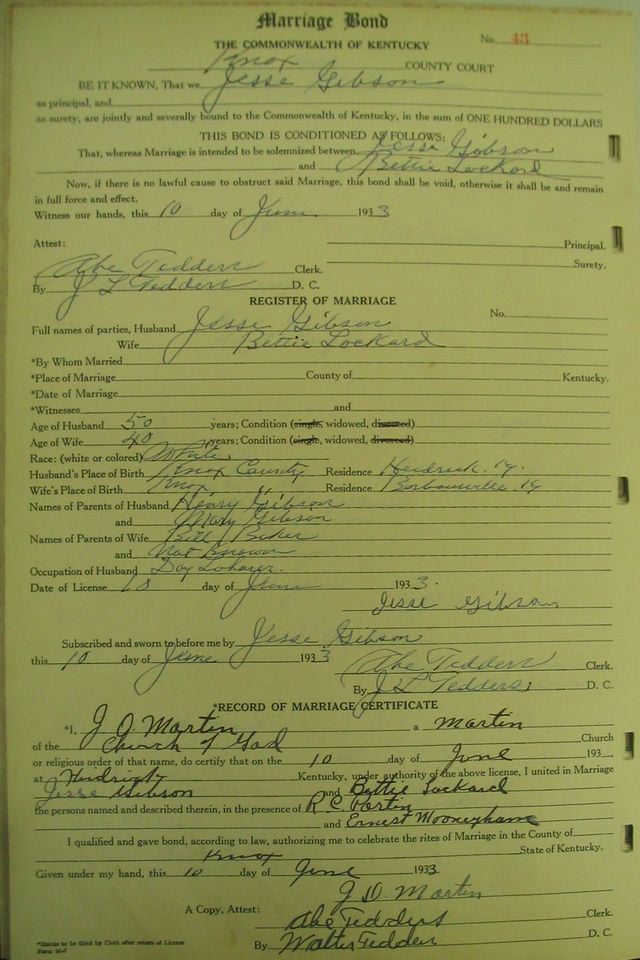 Marriage Bond
THE COMMONWEALTH OF KENTUCKY
No. 43
Knox COUNTY COURT
BE IT KNOWN, That we Jesse Gibson
as principal, and
as surety, are jointly and severally bound to the Commonwealth of Kentucky, in the sum of ONE HUNDRED DOLLARS
THIS BOND IS CONDITIONED AS FOLLOWS:
That, whereas Marriage is intended to be solemnized between Jesse Gibson
and Bettie Lockard
Now, if there is no lawful cause to obstruct said Marriage, this bond shall be void, otherwise it shall be and remain
in full force and effect.
Witness our hands, this 10 day of June 1933
Attest: Principal.
Abe Tedders Clerk. Surety.
By J L Tedders D. C.
REGISTER OF MARRIAGE
No.
Full names of parties, Husband Jesse Gibson
Wife Bettie Lockard
*By Whom Married
*Place of Marriage County of Kentucky.
*Date of Marriage
*Witnesses and
Age of Husband 50 years; Condition (single, widowed, divorced)
Age of Wife 40 years; Condition (single, widowed, divorced)
Race: (white or colored) White
Husband's Place of Birth Knox County Residence Heidrick. Ky.
Wife's Place of Birth Knox " Residence Barbourville. Ky
Names of Parents of Husband Henry Gibson
and Mary Gibson
Names of Parents of Wife Bill
and Not Known
Occupation of Husband Day Loborer.
Date of License 10 day of June 1933.
Jesse Gibson
Subscribed and sworn to before me by Jesse Gibson
this 10 day of June 1933
Abe Tedders Clerk.
By J L Tedders D. C.
*RECORD OF MARRIAGE CERTIFICATE
*I, J. D. Martin a Martin
of the Church of God Church
or religious order of that name, do certify that on the 10 day of June 193
at Heidrick Kentucky, under authority of the above license, I united in Marriage
Jesse Gibson and Bettie Lockard
the persons named and described therein, in the presence of R C Martin
and Ernest Mooneyham
I qualified and gave bond, according to law, authorizing me to celebrate the rites of Marriage in the County of
Knox State of Kentucky.
Given under my hand, this 10 day of June 1933
J. D. Martin
A Copy, Attest: Abe Tedders Clerk.
By Walter Tedders D. C.
*Blanks to be filled by Clerk after return of License